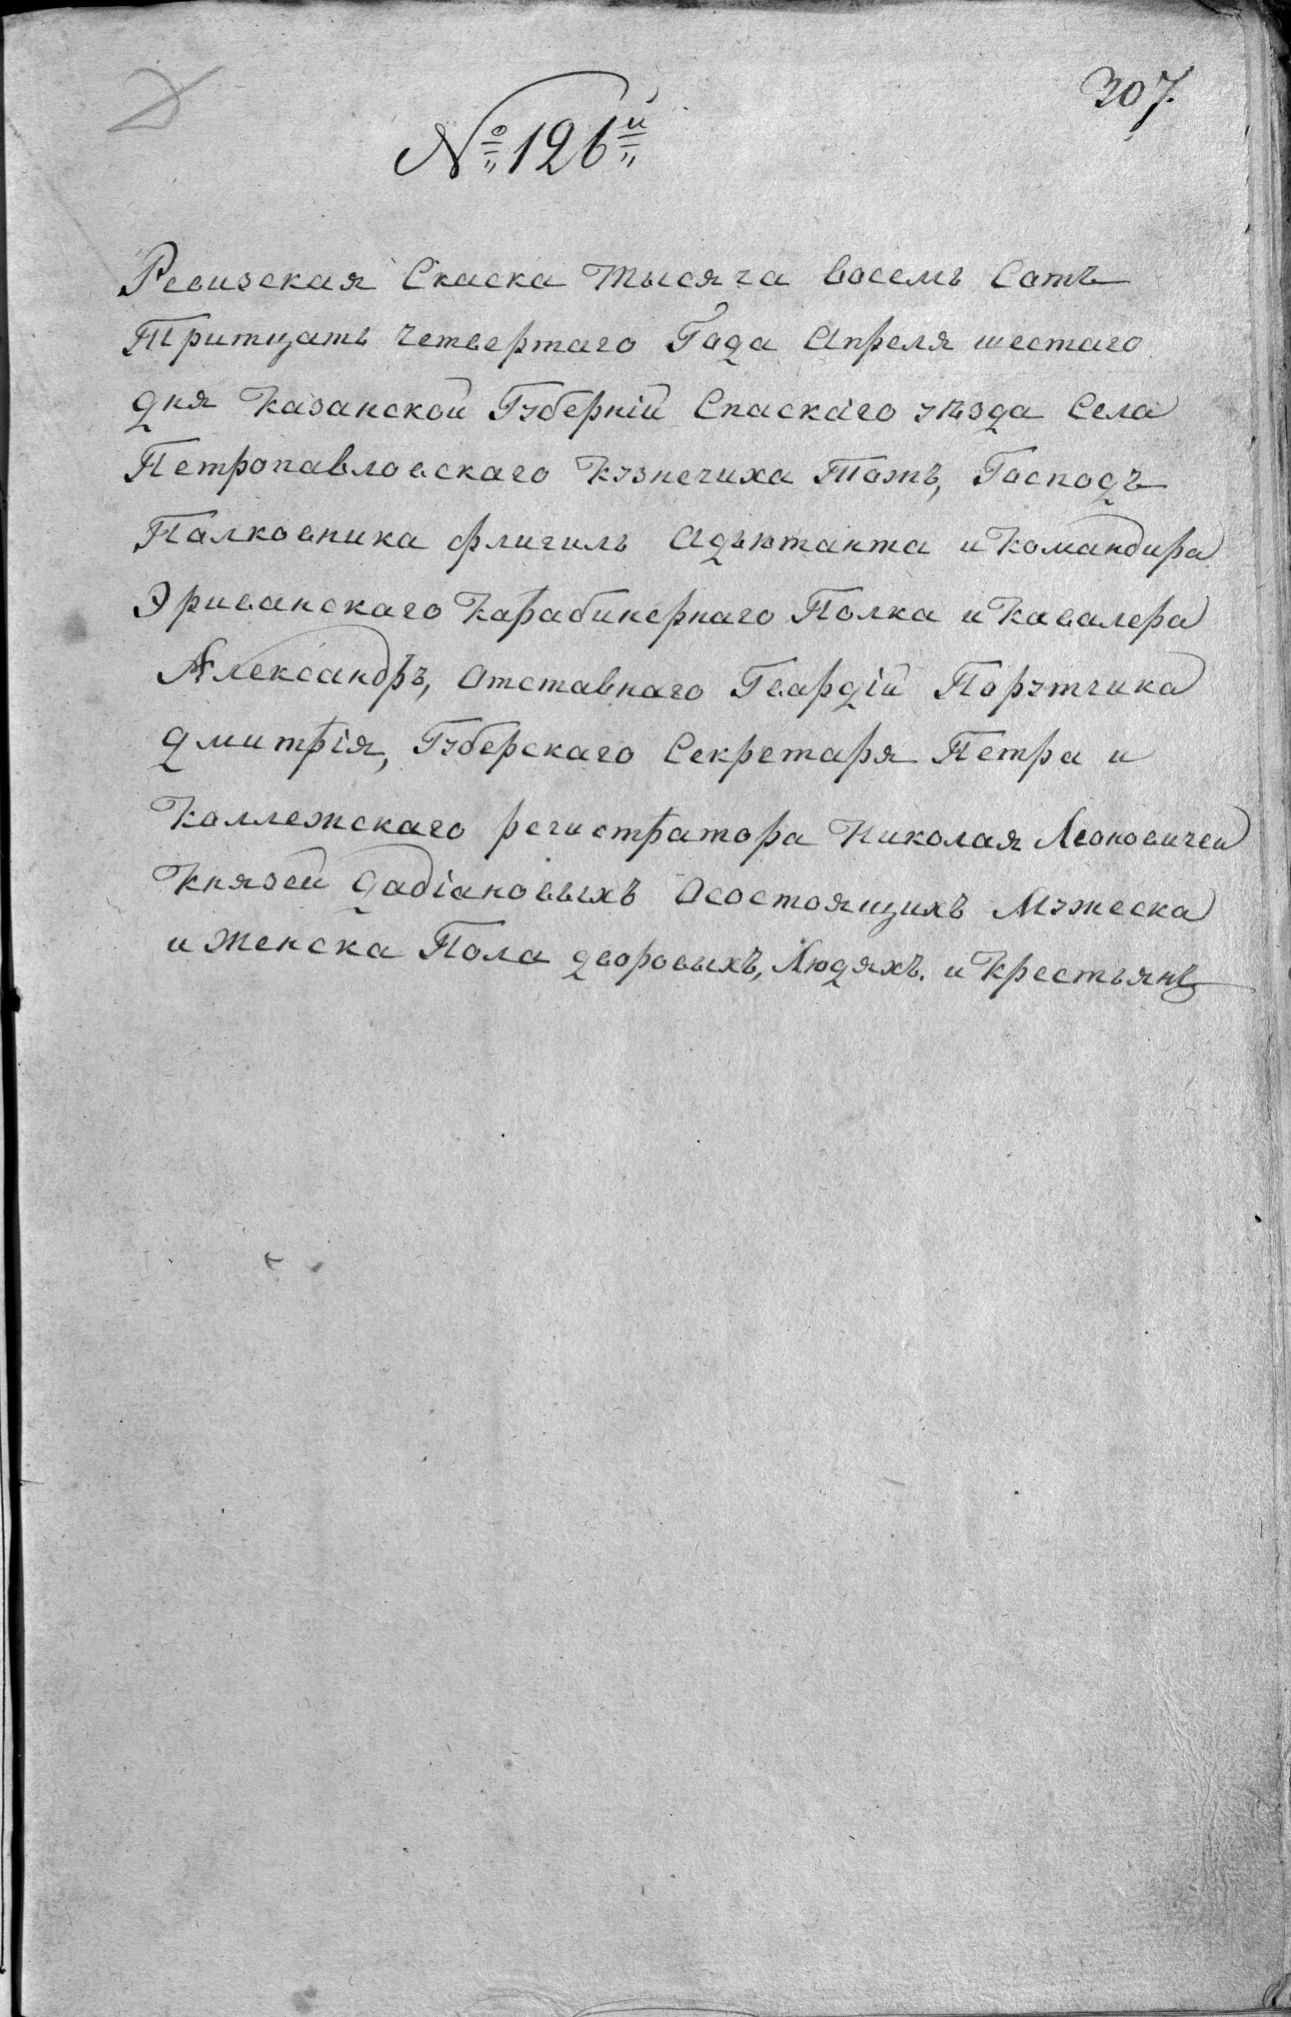 307.
№ 126й
Ревизская Скаска Тысяча восемь Сотъ
Тритцать четвертаго Года Апреля шестаго
дня Казанской Губерніи Спаскаго уѣзда Села
Петропавловскаго Кузнечиха Тожъ, Господъ
Полковника флигиль Адъютанта и Командира
Эриванскаго Карабинернаго Полка и Кавалера
Александръ, Отставнаго Гвардіи Порутчика
Дмитрія, Губерскаго Секретаря Петра и
Коллежскаго регистратора Николая Леоновичей
Князей Дадіановыхъ Осостоящихъ Мужеска
и Женска Пола дворовыхъ, Людяхъ. и Крестьянѣ